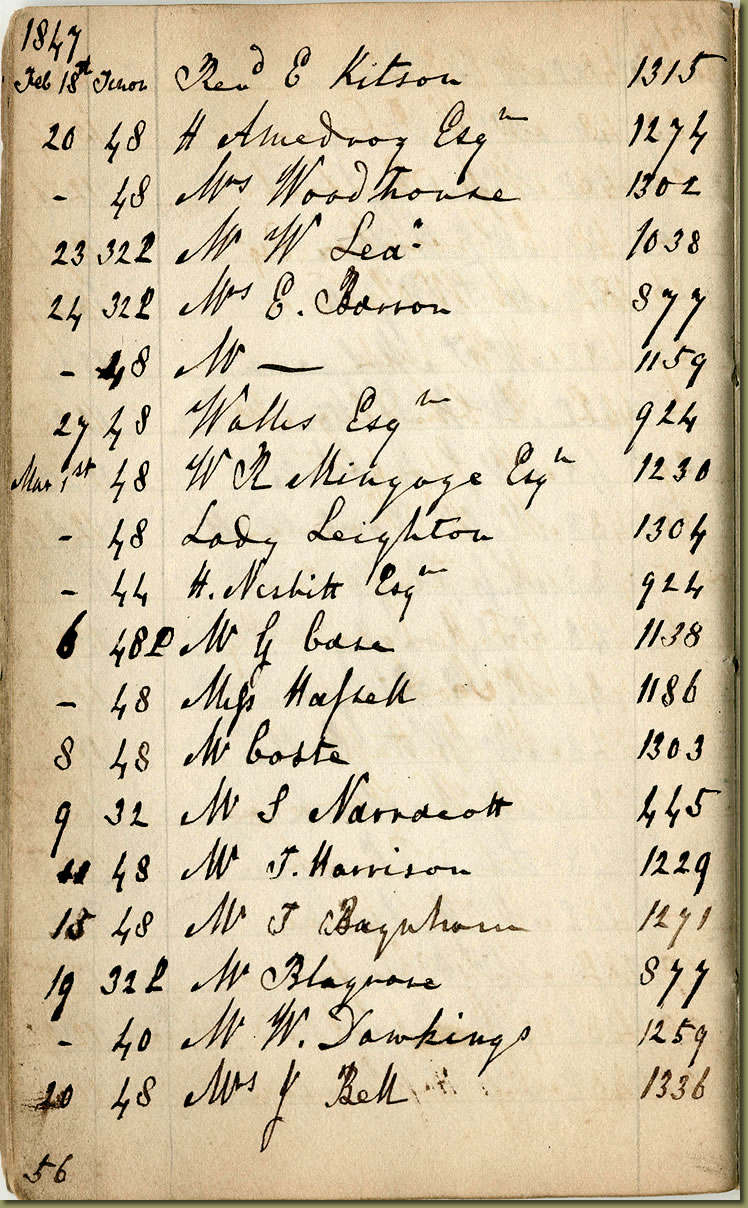 1847
Feb 18th Tenor Revd E Kitson 1315
20 48 H Amedroz Esqr 1274
- 48 Mrs Woodhouse 1302
23 32P Mr W Lea 1038
24 32P Mrs E. Barron 877
- 48 Mr — 1159
27 48 Wallis Esqr 924
Mar 1st 48 W R Mingaye Esqr 1230
- 48 Lady Leighton 1304
- 44 H. Nesbitt Esqr 924
6 48P Mr G Case 1138
- 48 Miss Hassell 1186
8 48 Mr Coste 1303
9 32 Mr S Narracott 445
11 48 Mr T. Harrison 1229
15 48 Mr T Baynham 1271
19 32P Mr Blagrove 877
- 40 Mr W. Dawkings 1259
20 48 Mrs J Bell 1336
56